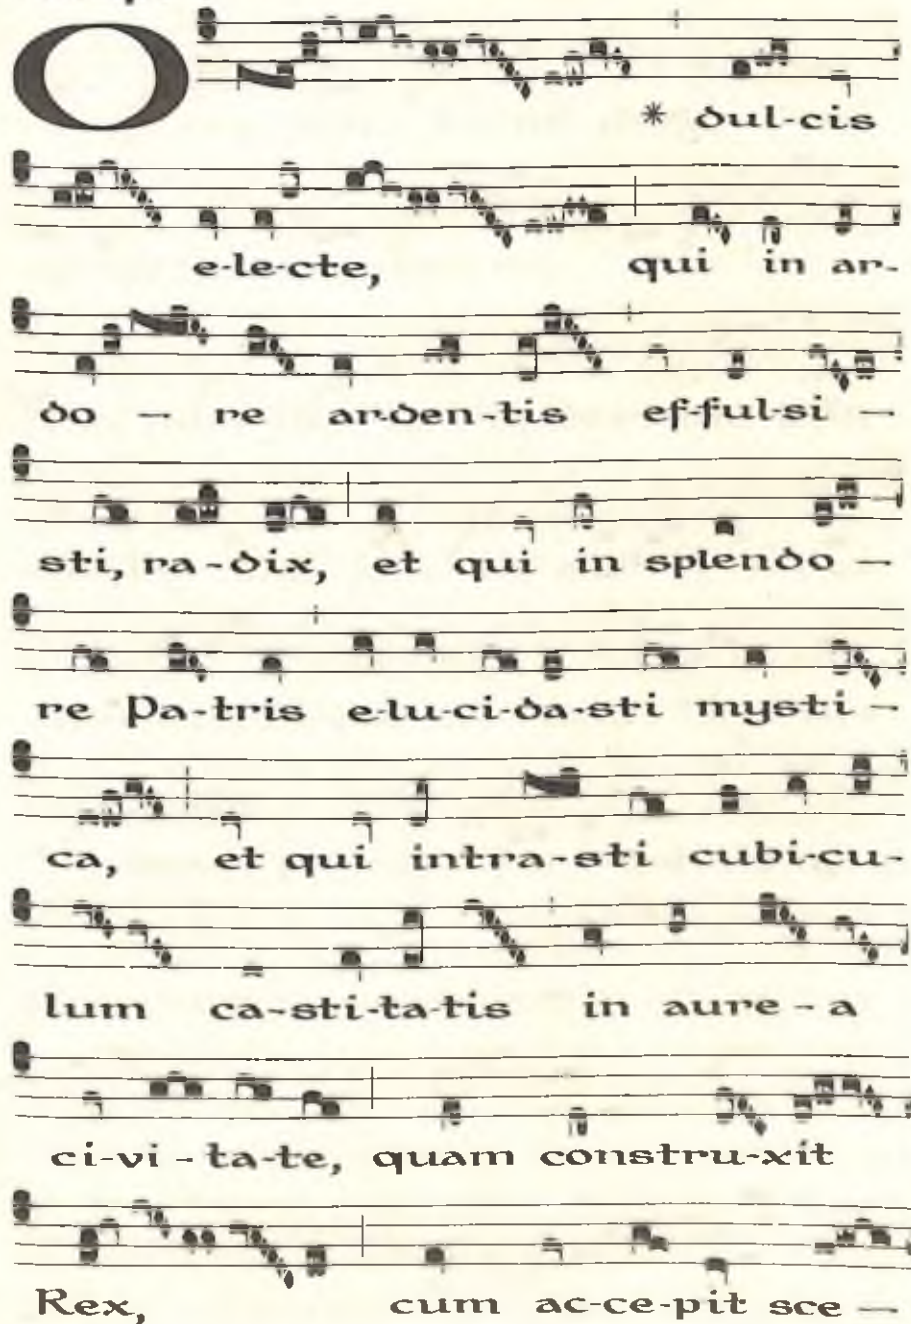 O * dul-cis
e-le-cte, qui in ar-
do - re ar-den-tis ef-ful-si -
sti, ra-dix, et qui in splendo -
re Pa-tris e-lu-ci-da-sti mysti -
ca, et qui intra-sti cubi-cu-
lum ca-sti-ta-tis in aure - a
ci-vi - ta-te, quam constru-xit
Rex, cum ac-ce-pit sce -